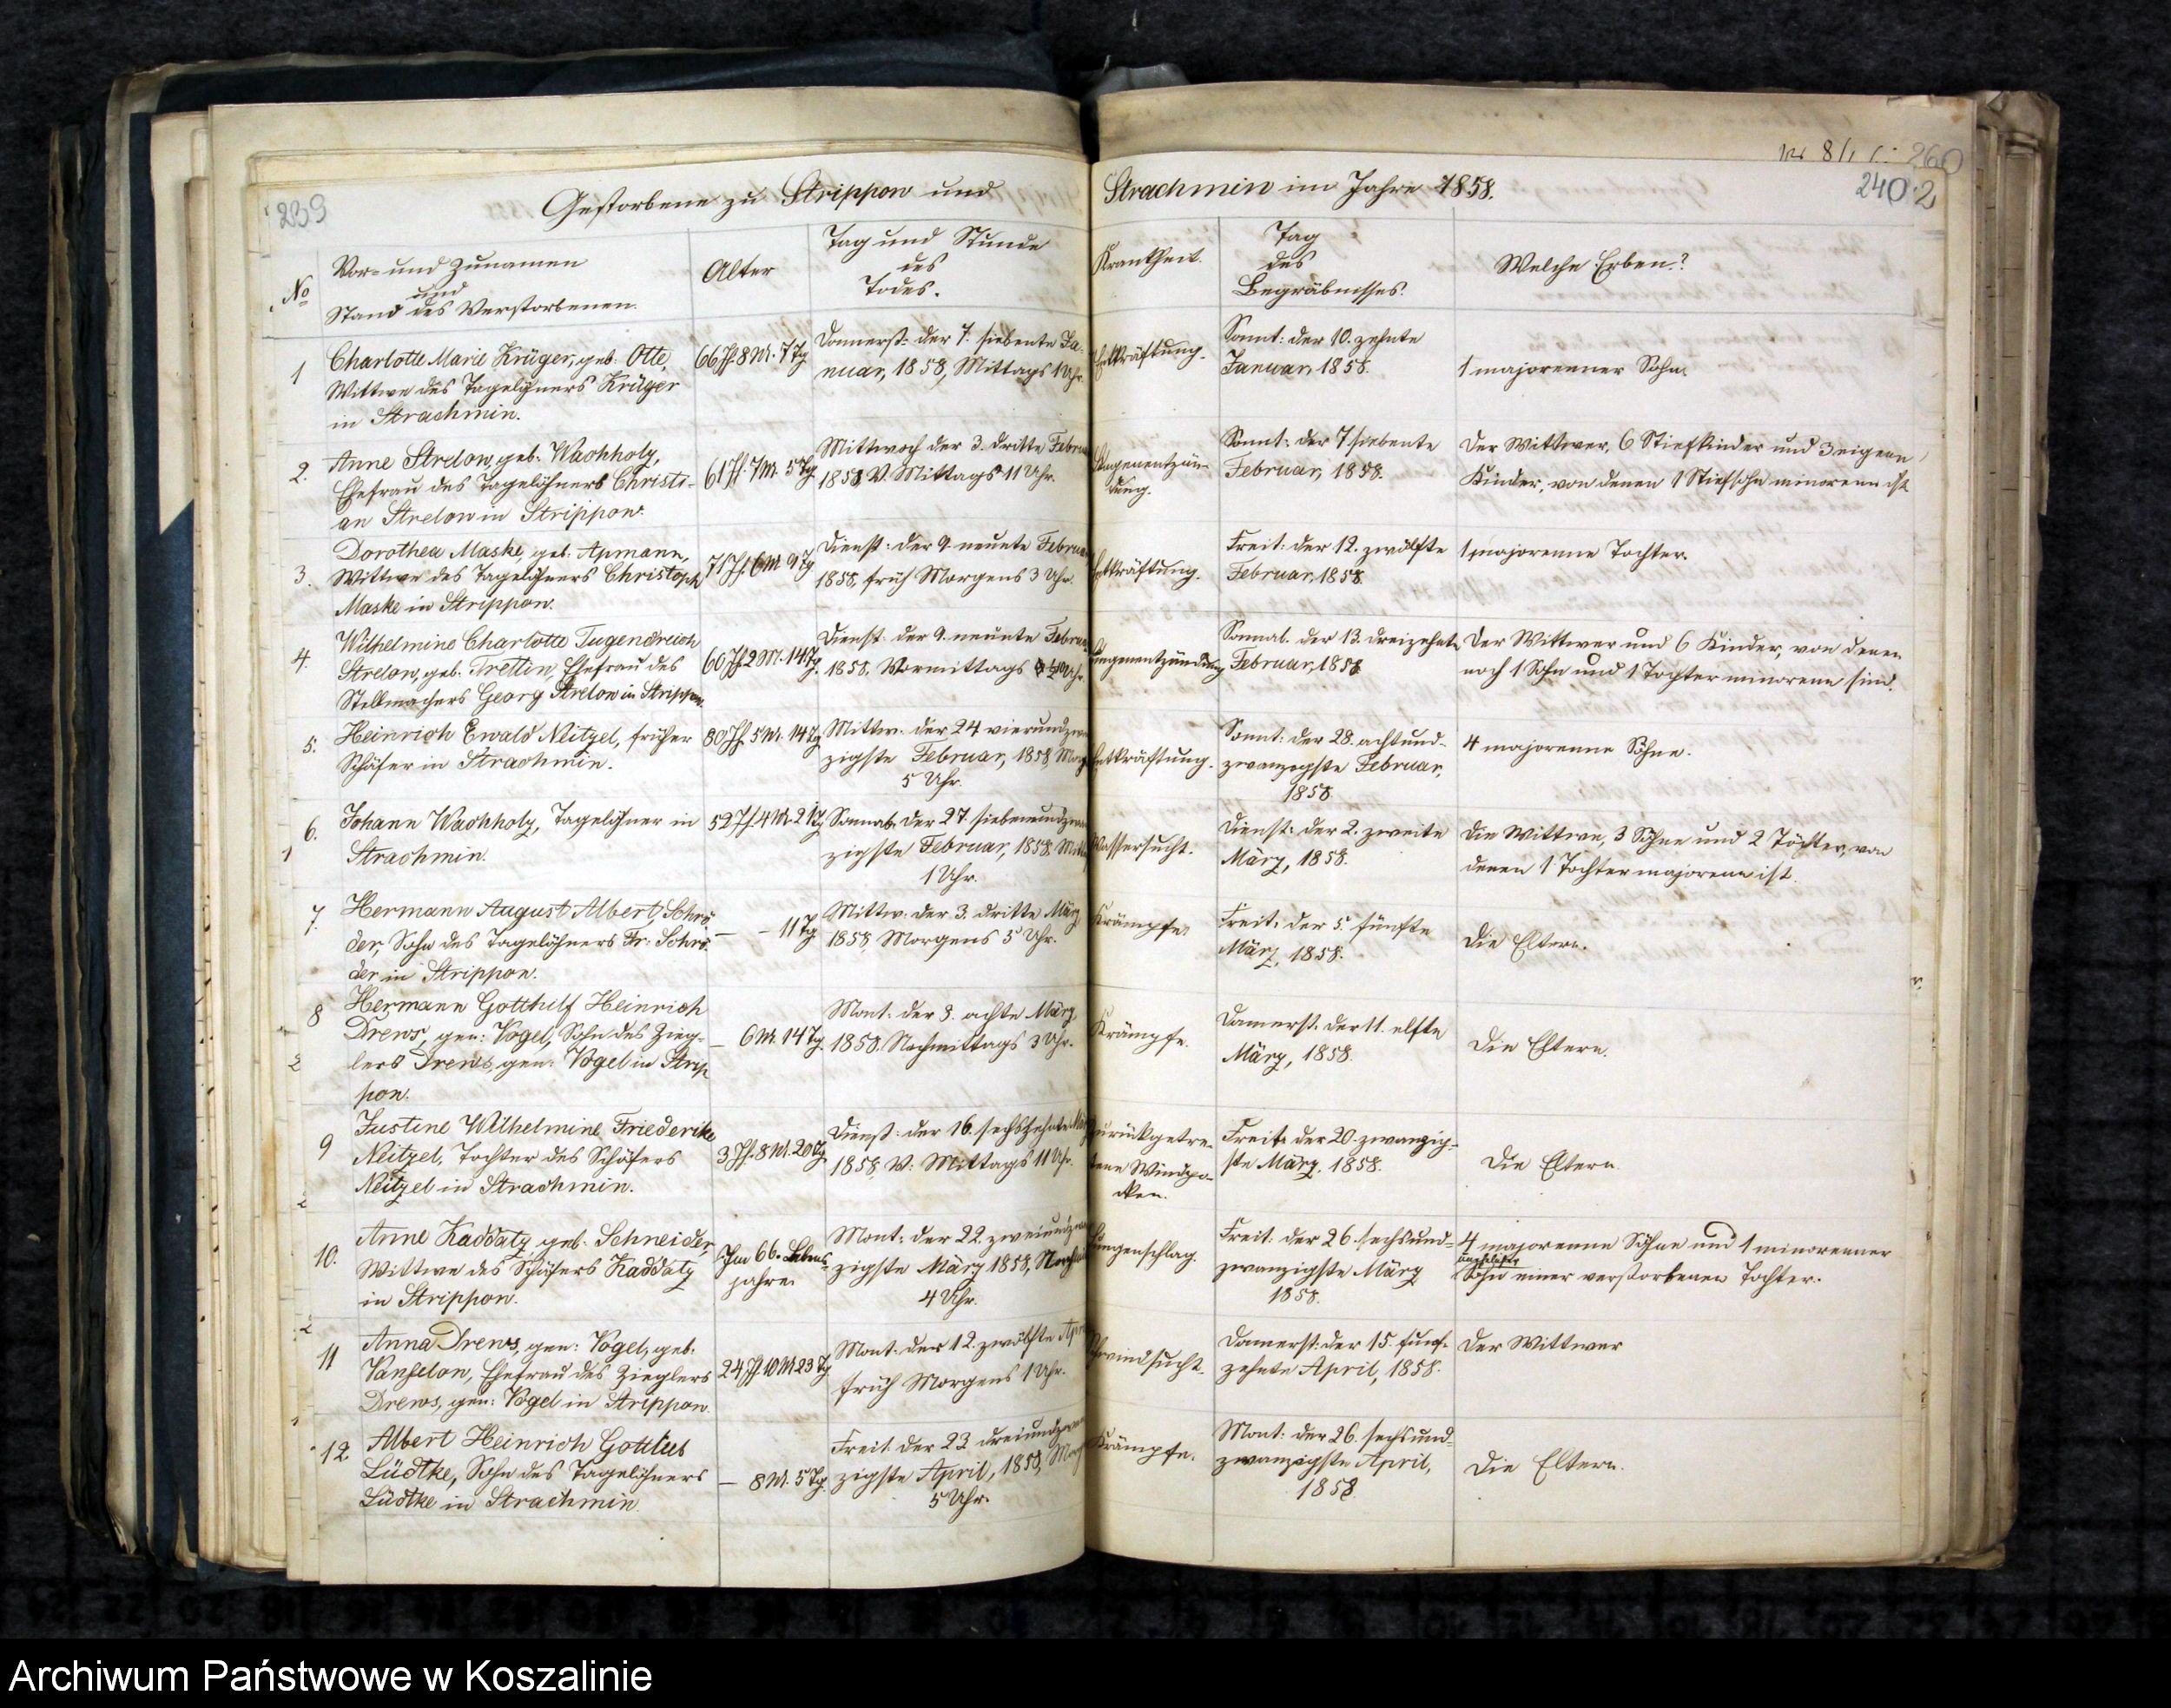 239
Gestorbene zu Strippow und
Strachmin im Jahre 1858.
260
240
2
No
Vor- und Zunamen
und
Stand des Verstorbenen.
Alter
Tag und Stunde
des
Todes.
Krankheit.
Tag
des
Begräbnisses.
Welche Erben?
1
Charlotte Marie Krüger, geb. Otte,
Wittwe des Tagelöhners Krüger
in Strachmin.
66 Jh 8 M. 7 Tg
Donnerst: der 7. siebente Ja-
nuar, 1858, Mittags 1 Uhr.
Entkräftung.
Sonnt: der 10. zehnte
Januar, 1858.
1 majorenner Sohn.
2.
Anne Strelow, geb. Wachholz,
Ehefrau des Tagelöhners Christi-
an Strelow in Strippow.
61 Jh. 7 M. 5 Tg
Mittwoch der 3. dritte Februar
1858 V. Mittags 11 Uhr.
Lungenentzün-
dung.
Sonnt: der 7 siebente
Februar, 1858.
Der Wittwer, 6 Stiefkinder und 3 eigene
Kinder, von denen 1 Stiefsohn minorenn ist
3.
Dorothea Maske, geb. Apmann,
Wittwe des Tagelöhners Christoph
Maske in Strippow.
71 Jh. 6 M 9 Tg
Dienst: der 9 neunte Februar
1858, früh Morgens 3 Uhr.
Entkräftung.
Freit: der 12. zwölfte
Februar, 1858.
1 majorenne Tochter.
4.
Wilhelmine Charlotte Tugendreich
Strelow, geb. Trettin, Ehefrau des
Stellmachers Georg Strelow in Strippow.
60 Jh 2 M. 14 Tg.
Dienst: der 9. neunte Februar
1858, Vormittags Uhr.
Lungenentzündung
Sonnab. der 13. dreizehnte
Februar, 1858
Der Wittwer und 6 Kinder, von denen
noch 1 Sohn und 1 Tochter minorenn sind.
5.
Heinrich Ewald Nitzel, früher
Schäfer in Strachmin.
80 Jh. 5 M. 14 Tg
Mittw. der 24 vierundzwan
zigste Februar, 1858, Morg
5 Uhr.
Entkräftung.
Sonnt: der 28. achtund-
zwanzigste Februar,
1858
4 majorenne Söhne.
6.
Johann Wachholz, Tagelöhner in
Strachmin.
52 Jh. 4 M. 21 Tg
Sonnab. der 27 siebenundzwan
zigste Februar, 1858. Mittag
1 Uhr.
Wassersucht.
Dienst: der 2. zweite
März, 1858.
Die Wittwe, 3 Söhne und 2 Töchter, von
denen 1 Tochter majorenn ist.
7.
Hermann August Albert Schrö-
der, Sohn des Tagelöhners Fr: Schrö-
der in Strippow.
— — 11 Tg
Mittw: der 3. dritte März
1858, Morgens 5 Uhr.
Krämpfe.
Freit: der 5. fünfte
März, 1858.
Die Eltern.
8
Hermann Gotthilf Heinrich
Drews, gen: Vogel, Sohn des Zieg-
lers Drews, gen: Vogel in Strip
pow.
— 6 M. 14 Tg.
Mont: der 8. achte März,
1858. Nachmittags 3 Uhr.
Krämpfe.
Donnerst. der 11. elfte
März, 1858.
Die Eltern.
9
Justine Wilhelmine Friederike
Neitzel, Tochter des Schäfers
Neitzel in Strachmin.
3 Jh. 8 M. 20 Tg
Dienst: der 16. sechszehnte März
1858, V: Mittags 11 Uhr.
Zurückgetre-
tene Windpo-
cken.
Freit: der 20. zwanzig-
ste März, 1858.
Die Eltern.
10.
Anne Kaddatz geb. Schneider,
Wittwe des Schäfers Kaddatz
in Strippow.
Im 66. Lebens-
jahre.
Mont: der 22. zweiundzwan
zigste März 1858, Nachm
4 Uhr.
Lungenschlag.
Freit: der 26. sechsund-
zwanzigste März
1858.
4 majorenne Söhne und 1 minorenner
Sohn einer verstorbenen Tochter.
11
Anna Drews, gen: Vogel, geb.
Vanselow, Ehefrau des Zieglers
Drews, gen: Vogel in Strippow.
24 Jh 10 M 23 Tg
Mont: der 12. zwölfte April
früh Morgens 1 Uhr.
Schwindsucht.
Donnerst: der 15. funf-
zehnte April, 1858.
Der Wittwer
12
Albert Heinrich Gottlieb
Lüdtke, Sohn des Tagelöhners
Lüdtke in Strachmin.
— 8 M. 5 Tg.
Freit: der 23 dreiundzwan
zigste April, 1858, Morg
5 Uhr.
Krämpfe.
Mont: der 26. sechsund-
zwanzigste April,
1858
Die Eltern.
Archiwum Państwowe w Koszalinie